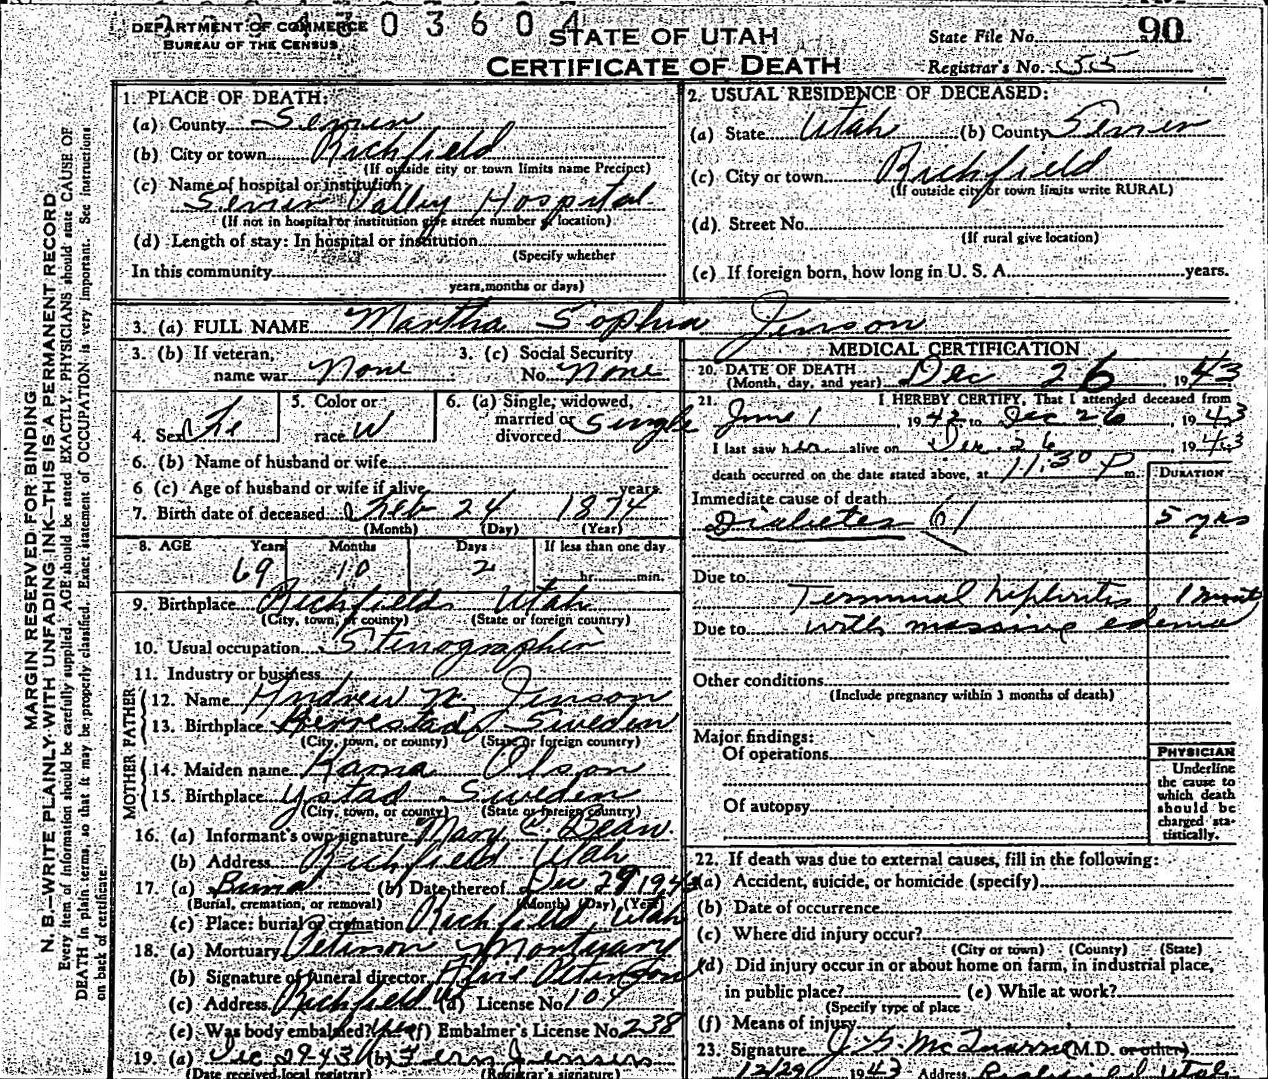 DEPARTMENT OF COMMERCE
BUREAU OF THE CENSUS
03604
STATE OF UTAH
CERTIFICATE OF DEATH
State File No. 90
Registrar's No. 55
MARGIN RESERVED FOR BINDING
N. B.—WRITE PLAINLY, WITH UNFADING INK—THIS IS A PERMANENT RECORD
Every item of information should be carefully supplied. AGE should be stated EXACTLY. PHYSICIANS should state CAUSE OF
DEATH in plain terms, so that it may be properly classified. Exact statement of OCCUPATION is very important. See instructions
on back of certificate.
1. PLACE OF DEATH:
(a) County Sevier
(b) City or town Richfield
(If outside city or town limits name Precinct)
(c) Name of hospital or institution:
Sevier Valley Hospital
(If not in hospital or institution give street number or location)
(d) Length of stay: In hospital or institution
(Specify whether
In this community
years, months or days)
2. USUAL RESIDENCE OF DECEASED:
(a) State Utah (b) County Sevier
(c) City or town Richfield
(If outside city or town limits write RURAL)
(d) Street No.
(If rural give location)
(e) If foreign born, how long in U. S. A. years.
3. (a) FULL NAME Martha Sophia Jenson
3. (b) If veteran,
name war None
3. (c) Social Security
No. None
4. Sex Fe
5. Color or
race W
6. (a) Single, widowed,
married or
divorced Single
6. (b) Name of husband or wife
6 (c) Age of husband or wife if alive years
7. Birth date of deceased Feb 24 1874
(Month) (Day) (Year)
8. AGE Years Months Days If less than one day
69 10 2 hr. min.
9. Birthplace Richfield Utah
(City, town, or county) (State or foreign country)
10. Usual occupation Stenographer
11. Industry or business
FATHER
12. Name Andrew N. Jenson
13. Birthplace Sweden
(City, town, or county) (State or foreign country)
MOTHER
14. Maiden name Karna Olson
15. Birthplace Ystad Sweden
(City, town, or county) (State or foreign country)
16. (a) Informant's own signature Mary C. Dean
(b) Address Richfield Utah
17. (a) Burial (b) Date thereof Dec 29 1943
(Burial, cremation, or removal) (Month) (Day) (Year)
(c) Place: burial or cremation Richfield Utah
18. (a) Mortuary Peterson Mortuary
(b) Signature of funeral director
(c) Address Richfield U (d) License No. 104
(e) Was body embalmed? Yes (f) Embalmer's License No. 238
19. (a) Dec 29-43 (b) Fern
(Date received local registrar) (Registrar's signature)
MEDICAL CERTIFICATION
20. DATE OF DEATH
(Month, day, and year) Dec 26, 1943
21. I HEREBY CERTIFY, That I attended deceased from
June 1, 1942 to Dec 26, 1943
I last saw her alive on Dec. 26, 1943
death occurred on the date stated above, at 11:30 P m.
DURATION
Immediate cause of death
Diabetes 61 5 yrs
Due to
Terminal nephritis 1 mont
Due to with massive edema
Other conditions
(Include pregnancy within 3 months of death)
Major findings:
Of operations
Of autopsy
PHYSICIAN
Underline
the cause to
which death
should be
charged sta-
tistically.
22. If death was due to external causes, fill in the following:
(a) Accident, suicide, or homicide (specify)
(b) Date of occurrence
(c) Where did injury occur?
(City or town) (County) (State)
(d) Did injury occur in or about home on farm, in industrial place,
in public place? (e) While at work?
(Specify type of place
(f) Means of injury
23. Signature J. G. McQuarrie (M.D. or other)
12/29 1943 Address Richfield Utah